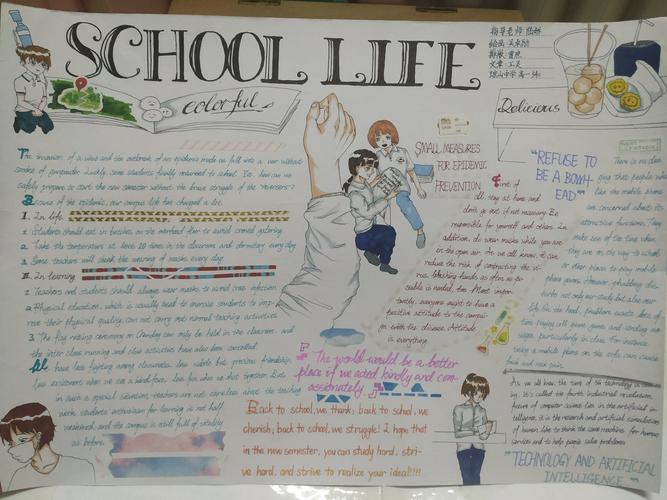 SCHOOL LIFE
colorful
Delicious
The invasion of a virus and the outbreak of an epidemic made us fall into a war without
smoke of gunpowder. Luckily, some students finally returned to school. So, how can we
safely prepare to start the new semester without the brave struggle of the
Because of the epidemic, our campus life has changed a lot.
I. In life
1. Students should eat in batches on the
to avoid crowd gathering
2. Take the temperature at least 10 times in the classroom and dormitory every day
3. Some teachers will
the wearing of masks every day
II. In learning
1. Teachers and students should always wear masks to avoid cross infection.
2. Physical education, which is usually used to exercise students to imp-
rove their physical quality, can not carry out normal teaching activities.
3. The flag raising ceremony on Monday can only be held in the classroom, and
the inter class running and
activities have also been cancelled.
have less fighting among classmates, less
but precious friendship.
in such a special situation, teachers are not careless about the teaching
work, students' enthusiasm for learning is not half
weakened, and the campus is still full of vitality
as before.
SMALL MEASURES
FOR EPIDEMIC
PREVENTION
First of
all, stay at home and
don't go out if not necessary. Be
responsible for yourself and others. In
addition, do wear masks while you are
in the open air. As we all know, it can
reduce the risk of contracting the vi-
rus. Washing hands as often as po-
ssible is needed, too. Most impor-
tantly, everyone ought to have a
positive attitude to the campai-
gn with the disease. Attitude
is everything.
"REFUSE TO
BE A BOWH-
EAD"
There is no den-
ying that people who
like the mobile phone
are concerned about its
attractive functions. They
make use of the time when
they are on the way to school
or other places to play mobile
phone games. However, phubbing dis-
turbs not only our study but also our
life. On the hand, phubbers waste lots of
time playing cell phone games and sending me-
ssages, particularly in class. For instance,
using a mobile phone on the sofa can cause
back and neck pain.
The world would be a better
place if we acted kindly and com-
passionately
Back to school, we thank; back to school, we
cherish; back to school, we struggle! I hope that
in the new semester, you can study hard, stri-
ve hard, and strive to realize your ideal!!!!
As we all know, the
It's called the fourth industrial revolution.
human like to think the same machine, for human
services and to help people solve problems.
"TECHNOLOGY AND ARTIFICIAL
INTELLIGENCE"